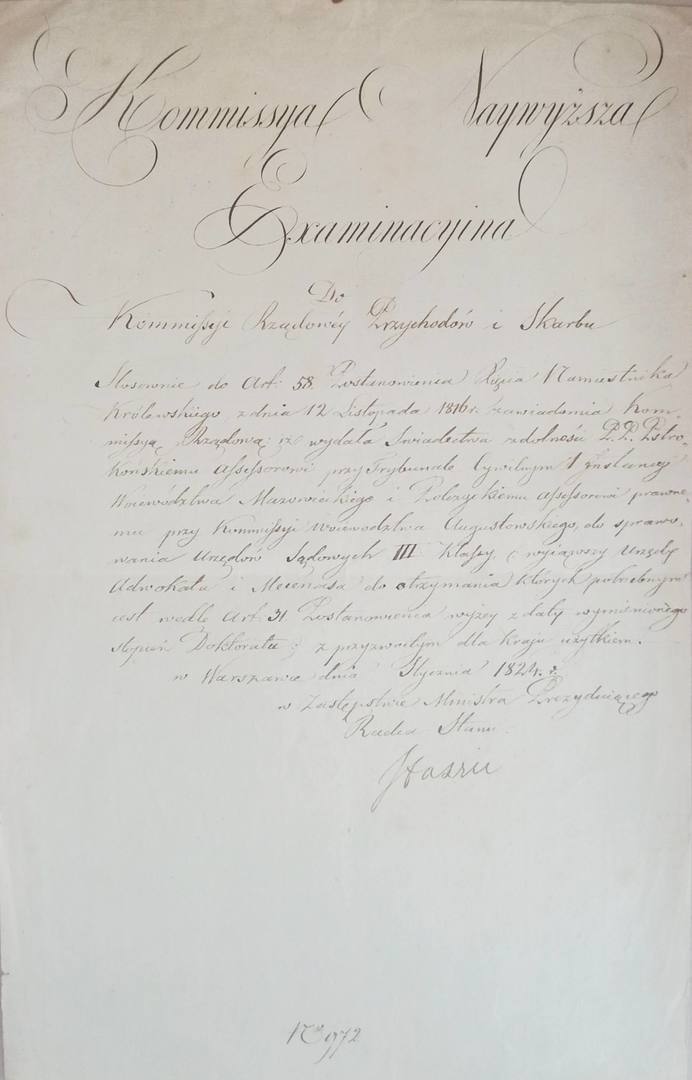 Kommissya Naywyższa
Examinacyina
Do
Kommissyi Rządowéy Przychodów i Skarbu
Stosownie do Art: 58. Postanowienia Xięcia Namiestnika
Królewskiego, z dnia 12 Listopada 1816 r. zawiadomia Kom-
missyą Rządową: iż wydała Swiadectwa zdolności P.P. Pstro-
końskiemu Assessorowi przy Trybunale Cywilnym 1 Instancyi
Woiewództwa Mazowieckiego i assessorowi prawne-
mu przy Kommissyi Woiewództwa Augustowskiego, do sprawo-
wania Urzędów Sądowych III Klassy, (wyiąwszy Urzędy
Adwokata i Mecenasa do otrzymania których potrzebnym
iest wedle Art. 31. Postanowienia wyżey z daty wymienionego
stopień Doktoratu) z przyzwoitym dla Kraju użytkiem.
w Warszawie dnia Stycznia 1824. r.
w Zastępstwie Ministra Prezyduiącego
Radca Stanu.
Staszic
No 972